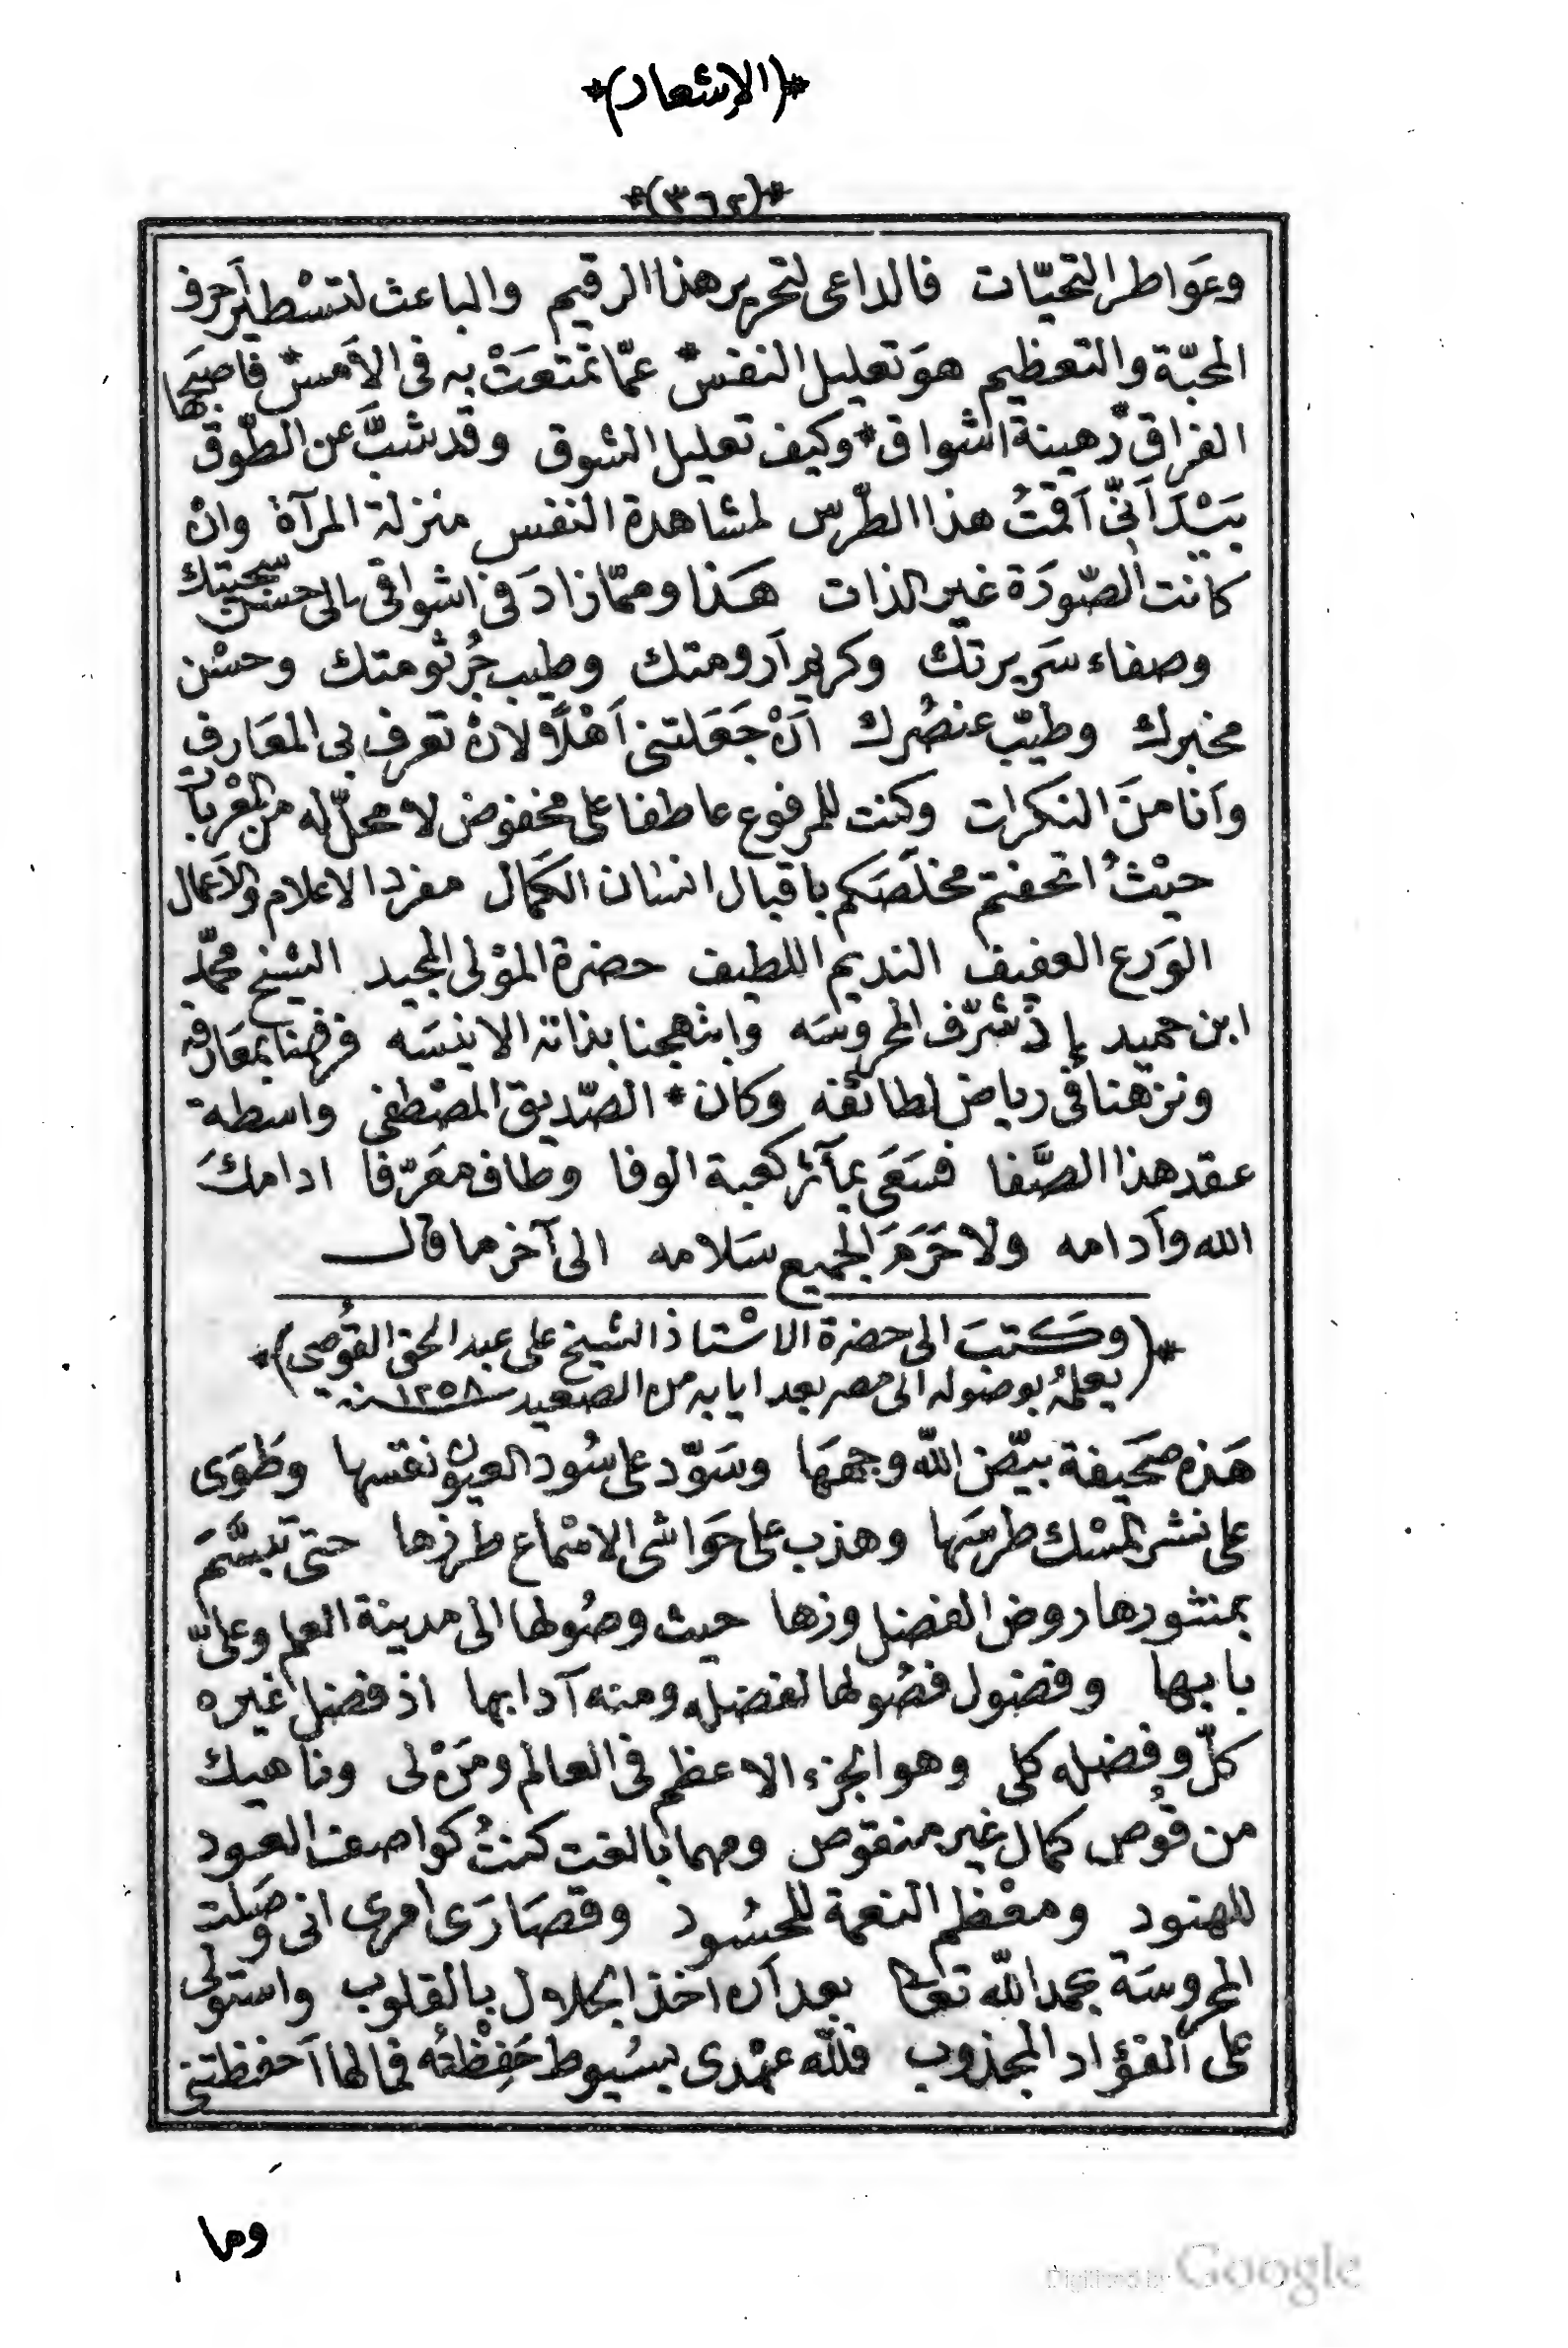 *(الإشعار)*
*(٣٦٢)*
وعَواطر التحيّات فالداعى لتحرير هذا الرقيم والباعث لتسْطير أحرف
المحبّة والتعظيم هوَ تعليل النفس* عمّا تمتعَتْ به فى الأمس* فاصبَحها
الفراق رهينة اشواق* وكيف تعليل الشوق وقد شبَّ عن الطّوق
بيْدَ أنّى أقمتُ هذا الطّرس لمشاهدة النفس منزلة المرآة وانْ
كانت الصّورَة غير الذات هَذا وممّا زادَ فى اشواقى الى حسن سجيتك
وصفاء سَريرتك وكريم أرومتك وطيب جُرثومتك وحسْن
مخبرك وطيّب عنصُرك أنْ جَعَلتنى أهْلاً لانْ تعرف بى المعَارف
وأنا منَ النكرات وكنت للمرفوع عاطفا على مخفوض لا محلّ له من المعْربات
حيْثُ اتحفتم مخلصَكم باقبال انسان الكمال مفرد الاعلام والأعمال
الوَرع العفيف النديم اللطيف حضرة الموْلى المجيد الشيخ محمّد
ابن حميد إذْ شرّف المحروسَه وابتهجنا بذاته الانيسَه فرضنا بمعَارفه
ونزهنا فى رياض لطائفه وكان* الصّديق المصْطفى واسطة
عقد هذا الصَّفا فسَعَى بمآثر كعبة الوفا وطاف معَرّفا ادامكَ
الله وأدامه ولا حَرَمَ الجميع سَلامه الى آخر ما قال
*(وكتبَ الى حضرة الاسْتاذ الشيخ على عبد الحق القوُصى)*
(يعلمُه بوصوله الى مصر بعد ايابه من الصعيد سنة ١٢٥٨)
هَذه صَحَيفة بيّض الله وجهَهَا وسَوّد على سُود العيون نقسها وطَوَى
على نشر المسْك طرسَها وهذب على حَوَاشى الاسْماع طرزها حتى تبسَّمَ
بمنثورها روض الفضل وزها حيث وصُولها الى مدينة العلم وعلىّ
بابها وفضول فصُولها لفضله ومنه آدابها اذ فضل غيره
كلّ وفضله كلى وهو الجزء الاعظم فى العالم ومَنْ لى وناهيك
من قوُص كمال غير منقوص ومهما بالغت كنتُ كواصف العود
للهنود ومعْظم النعمة للحسُود وقصَارَى امرى انى وصَلت
المحروسَة بحمد الله تعالى بعد أن أخذ الكلال بالقلوب واستولى
على الفؤاد المجذوب فللّه عهْدى بسيُوط حَفِظْتُه فما لها أحفظتنى
وما
Digitized by Google